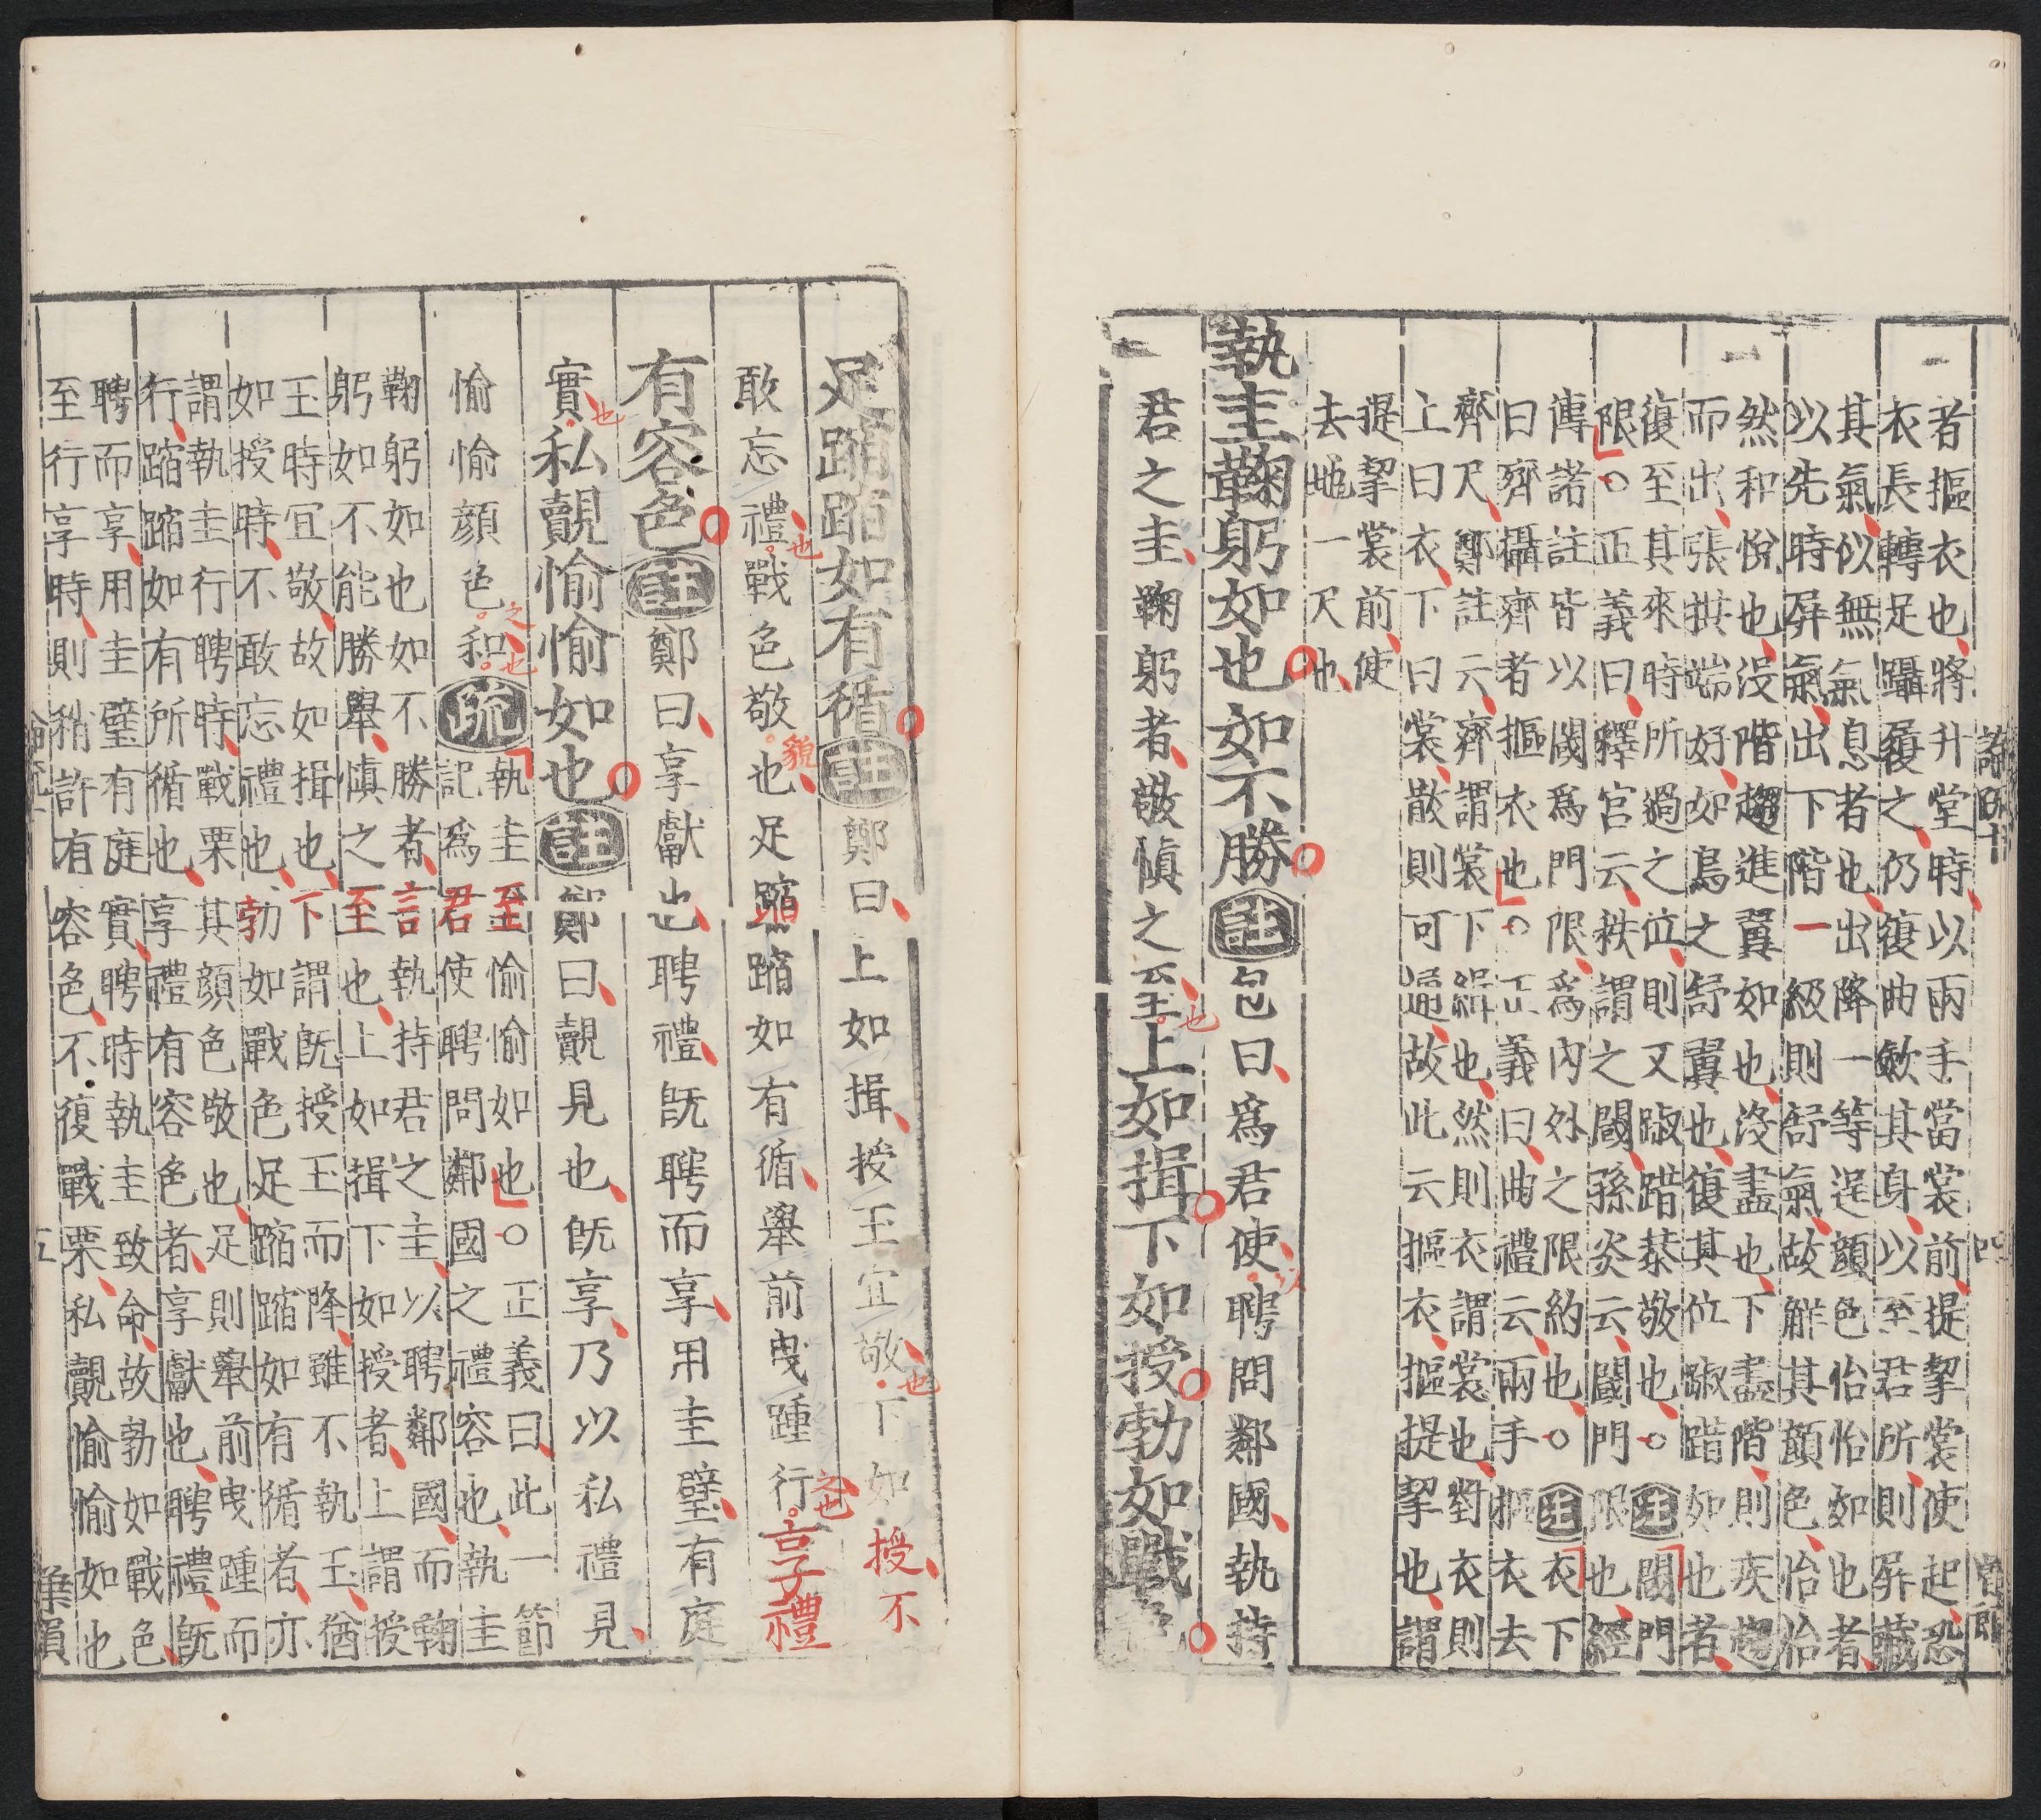 者摳衣也將升堂時以兩手當裳前提挈裳使起恐
衣長轉足躡履之仍復曲斂其身以至君所則屏藏
其氣似無氣息者也出降一等逞顔色怡怡如也者
以先時屏氣出下階一級則舒氣故觧其顔色怡怡
然和悅也没階趨進翼如也没盡也下盡階則疾趨
而出張拱端好如鳥之舒翼也復其位踧踖如也者
復至其來時所過之位則又踧踖恭敬也○註閾門
限○正義曰釋宮云柣謂之閾孫炎云閾門限也經
傳諸註皆以閾爲門限爲內外之限約也○註衣下
曰齊攝齊者摳衣也○正義曰曲禮云兩手摳衣去
齊尺鄭註云齊謂裳下緝也然則衣謂裳也對衣則
上曰衣下曰裳散則可通故此云摳衣摳提挈也謂
提挈裳前使
去地一尺也
執圭鞠躬如也如不勝註包曰爲君使以聘問鄰國執持
君之圭鞠躬者敬慎之至也上如揖下如授勃如戰色
足蹜蹜如有循註鄭曰上如揖授玉宜敬也下如授不
敢忘禮也戰色敬貌也足蹜蹜如有循舉前曳踵行之也享禮
有容色註鄭曰享獻也聘禮旣聘而享用圭璧有庭
實也私覿愉愉如也註鄭曰覿見也旣享乃以私禮見
愉愉顔色之和也疏執圭至愉愉如也○正義曰此一節
記爲君使聘問鄰國之禮容也執圭
鞠躬如也如不勝者言執持君之圭以聘鄰國而鞠
躬如不能勝舉慎之至也上如揖下如授者上謂授
玉時宜敬故如揖也下謂旣授玉而降雖不執玉猶
如授時不敢忘禮也勃如戰色足蹜蹜如有循者亦
謂執圭行聘時戰栗其顔色敬也足則舉前曳踵而
行蹜蹜如有所循也享禮有容色者享獻也聘禮旣
聘而享用圭璧有庭實聘時執圭致命故勃如戰色
至行享時則稍許有容色不復戰栗私覿愉愉如也
五
葉員